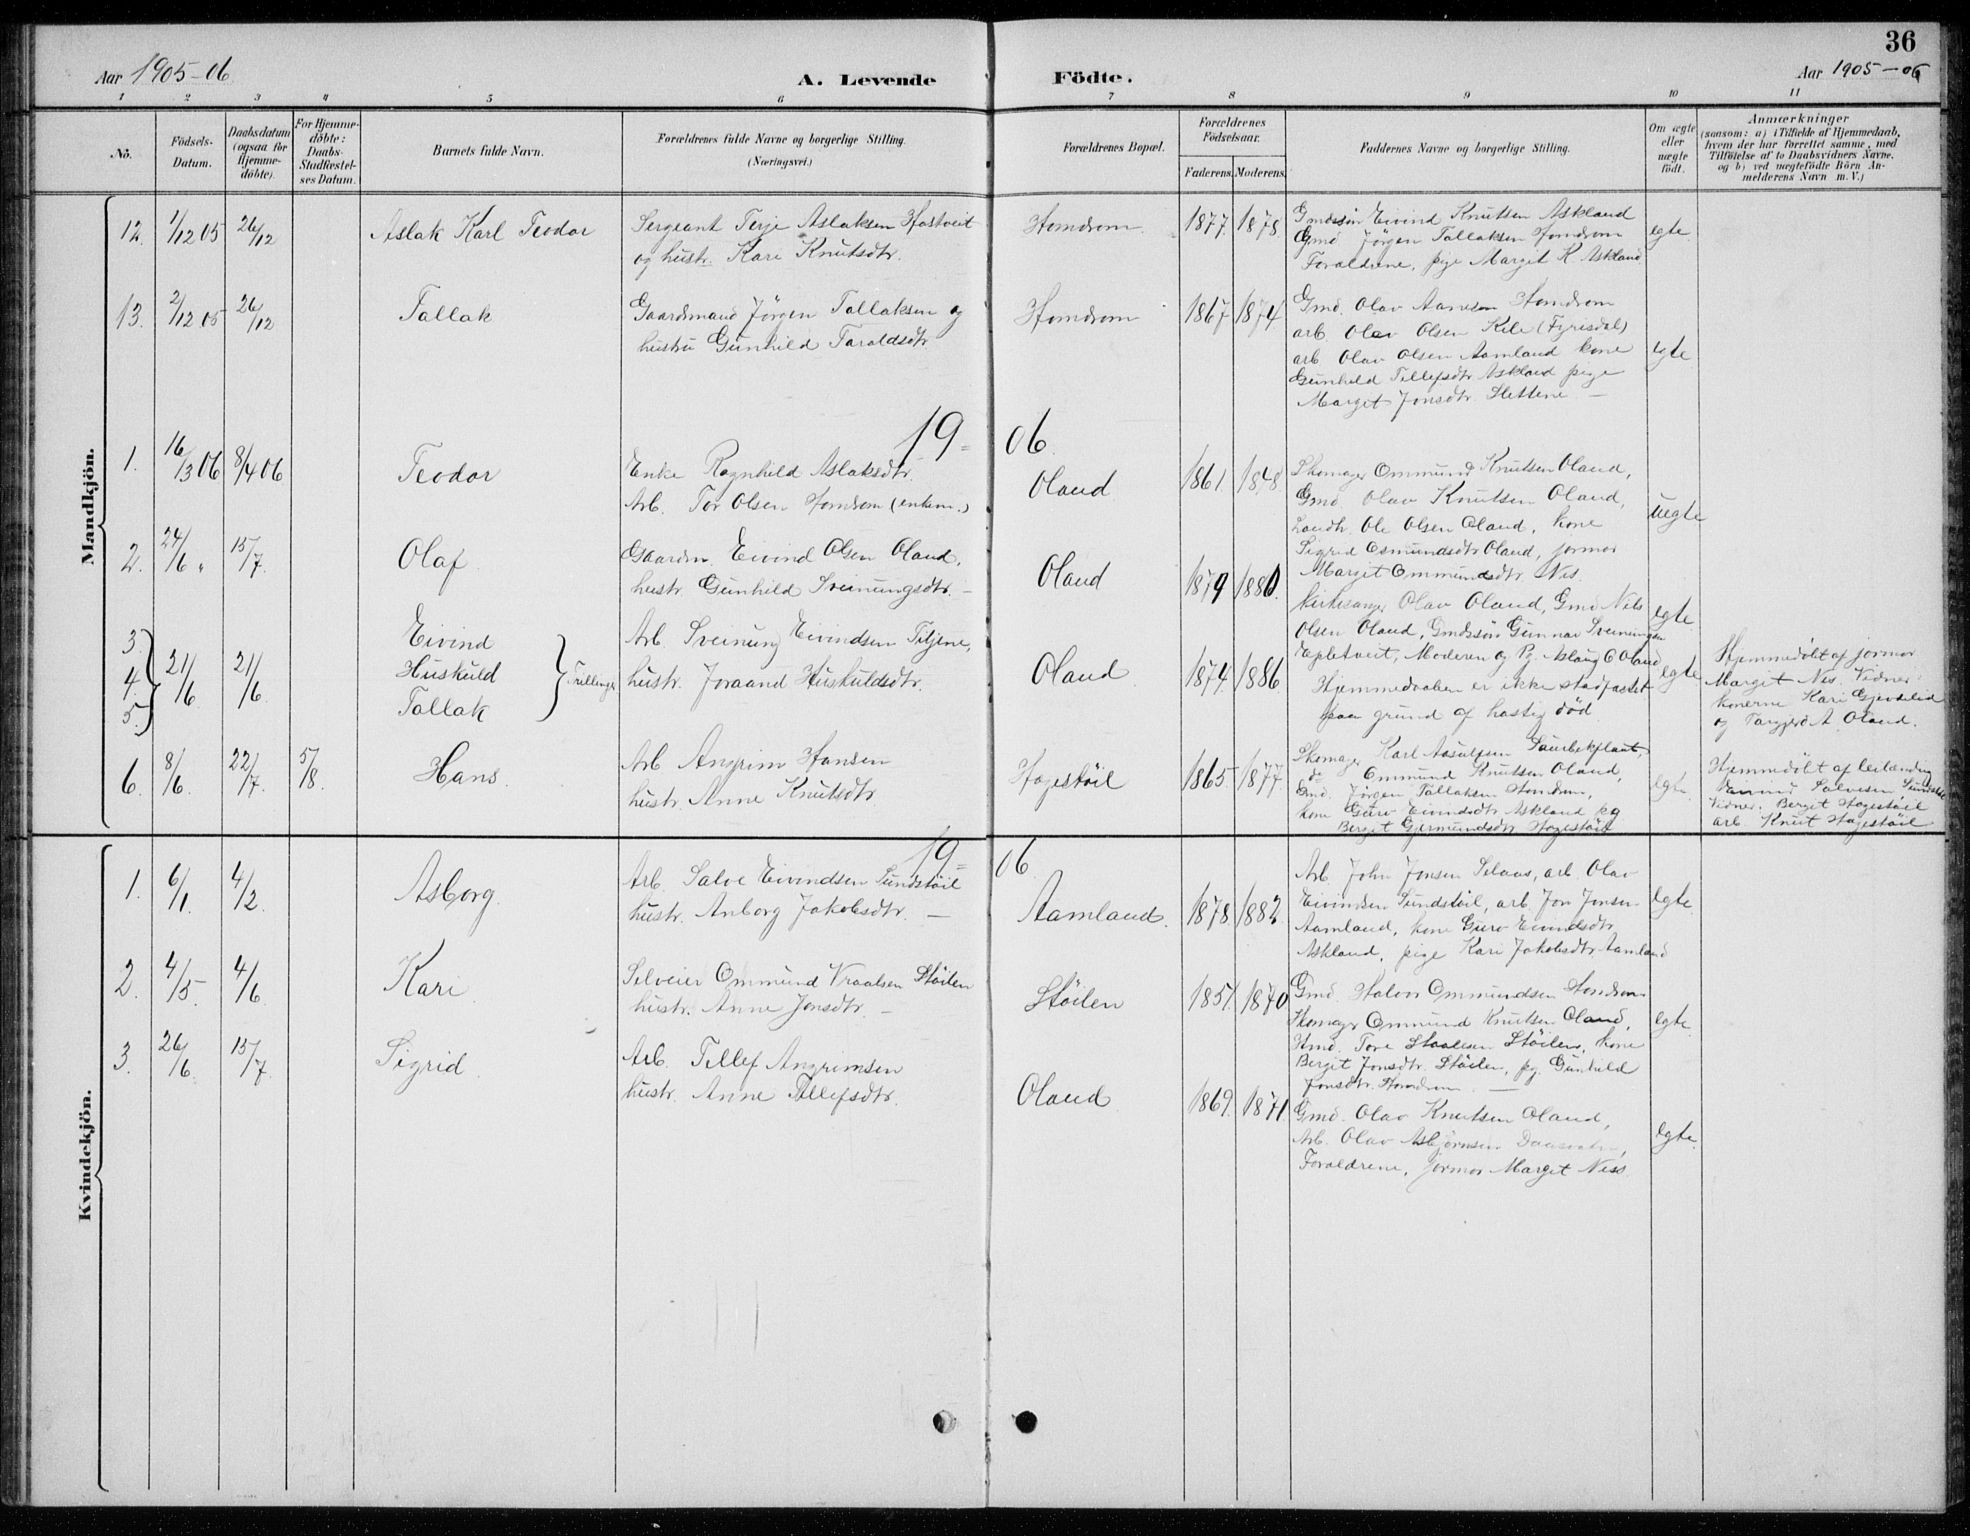 36
Aar 1905-06
A. Levende Födte.
Aar 1905-06
1 2 3 4 5 6 7 8 9 10 11
No.
Födsels-Datum.
Daabsdatum (ogsaa for Hjemme-döbte).
For Hjemme-döbte: Daabs-Stadfæstel-ses Datum.
Barnets fulde Navn.
Forældrenes fulde Navne og borgerlige Stilling. (Næringsvei.)
Forældrenes Bopæl.
Forældrenes Födselsaar.
Faderens. Moderens.
Faddernes Navne og borgerlige Stilling.
Om ægte eller uægte födt.
Anmærkninger
(saasom: a) i Tilfælde af Hjemmedaab, hvem der har forrettet samme, med Tilföielse af to Daabsvidners Navne, og b) ved uægtefödte Börn Anmelderens Navn m. V.)
Mandkjön.
12. 1/12 05 26/12 Aslak Karl Teodor
Sergeant Terje Aslaksen Hastveit
og hustr. Kari Knutsdtr.
Homdrom 1877. 1878
Gmdssön Eivind Knutsen Askland
Gmd Jörgen Tallaksen Homdrom
Forældrene, pige Marget K. Askland
egte.
13. 2/12 05 26/12 Tallak
Gaardmand Jörgen Tallaksen og
hustru Gunhild Taraldsdtr.
Homdrom 1867 1874
Gmd. Olav Aanesen Homdrom
arb. Olav Olsen Kile (Fyrisdal)
arb. Olav Olsen Aamland kone
Gunhild Tellefsdtr Askland pige
Marget Jonsdtr. Slettene —
egte
19=06.
1. 16/3 06 8/4 06 Teodor
Enke Ragnhild Aslaksdtr.
Arb. Tor Olsen Homdrom (enkem.)
Oland 1861. 1848
Skomager Ommund Knutsen Oland,
Gmd Olav Knutsen Oland,
Landh. Ole Olsen Oland, kone
Sigrid Osmundsdtr Oland, jormor
Marget Ommundsdtr. Nes.
uegte
2. 24/6 " 15/7. Olaf.
Gaardm. Eivind Olsen Oland,
hustr. Gunhild Sveinungsdtr. —
Oland 1879 1880.
Kirkesanger Olav Oland, Gmd Nils
Olsen Oland, Gmdssön Gunnar Sveinungsen
Epletveit, Moderen og Pg. Aslaug E Oland
egte
3. 4. 5. 21/6. 21/6
Eivind
Huskuld
Tallak
Trillinger
Arb. Sveinung Eivindsen Tiljene,
hustr. Joraand Huskuldsdtr.
Oland 1874. 1886
Hjemmedaaben er ikke stadfæstet
paa grund af hastig död
egte
Hjemmedöbt af jormor
Marget Nes. Vidner:
konerne Kari Gjevdelid
og Targjerd A. Oland.
6. 8/6. 22/7. 5/8. Hans.
Arb Angrim Hansen
hustr. Anne Knutsdtr.
Hagestöil 1865 1877.
Skomager Karl
do Ommund Knutsen Oland,
Gmd. Jörgen Tallaksen Homdrom,
kone Guro Eivindsdtr Askland pg
Berget Gjermundsdtr Hagestöil
egte.
Hjemmedöbt af leilænding
Eivind Salvesen Sundstöil
Vidner. Berget Hagestöil
arb. Knut Hagestöil
Kvindekjön.
19=06
1. 6/1. 4/2. Asborg.
Arb. Salve Eivindsen Sundstöil
hustr. Anborg Jakobsdtr. —
Aamland. 1878. 1882
Arb. John Jonsen Selaas, arb. Olav
Eivindsen Sundstöil, arb. Jon Jonsen
Aamland, kone Guro Eivindsdtr
Askland, pige Kari Jakobsdtr Aamland
egte.
2. 4/5. 4/6 Kari.
Selveier Ommund Vraalsen Stöilen
hustr. Anne Jonsdtr. —
Stöilen 1851. 1870.
Gmd. Halvor Ommundsen Homdrom
Skomager Ommund Knutsen Oland,
Hmd. Tore Staalesen Stöilen, kone
Bergit Jonsdtr. Stöilen, pg. Gunhild
Jonsdtr. Homdrom. —
egte.
3. 26/6. 15/7. Sigrid.
Arb. Tellef Angrimsen
hustr. Anne Tellefsdtr.
Oland 1869. 1871.
Gmd. Olav Knutsen Oland,
Arb. Olav Asbjörnsen
Forældrene, jormor Marget Ness
egte.